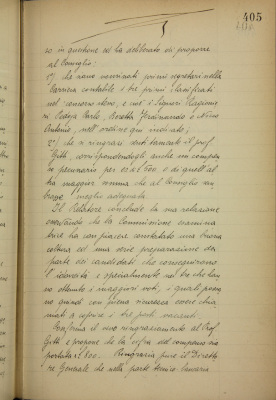 405
so in questione ed ha deliberato di proporre
al Consiglio:
1°) che siano nominati primi segretari nella
Carriera contabile i tre primi classificati
nel concorso stesso, e cioè i Signori Ragionie
ri Carlo, Ferdinando e
Antonio, nell'ordine qui indicato;
2°) che si ringrazi sentitamente il prof.
Gitti, corrispondendogli anche un compen
so pecuniario per es. L. 800 o di quell'al
tra maggior somma che al Consiglio sem
brasse meglio adeguata.
Il Relatore conclude la sua relazione
che la Commissione esamina
trice ha con piacere constatato una buona
coltura ed una seria preparazione da
parte dei candidati che conseguirono
l'idoneità e specialmente nei tre che han
no ottenuto i maggiori voti, i quali posso
no quindi con piena sicurezza essere chia
mati a coprire i tre posti vacanti.
il vivo ringraziamento al Prof.
Gitti e propone che la cifra del compenso sia
portata a L. 800. Ringrazia pure il Diretto
re Generale che nella parte tecnica